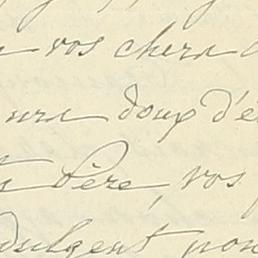 vos chers
doux d'é
Père, vos
dulgent pou